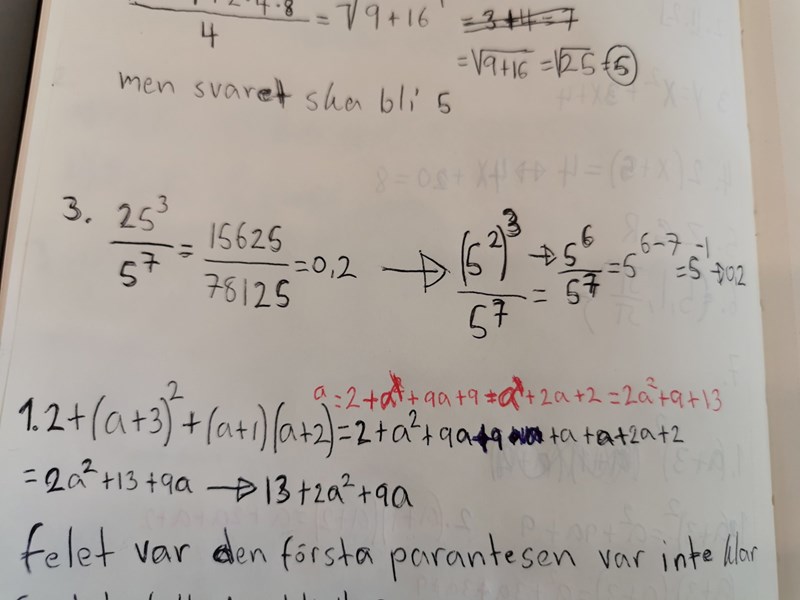 4 = √9+16 = 3+4=7
= √9+16 = √25 = 5
men svaret ska bli 5
3. 25³/5⁷ = 15625/78125 = 0,2 → (5²)³/5⁷ = → 5⁶/5⁷ = 5⁶⁻⁷ = 5⁻¹ → 0,2
a = 2+a²+9a+9+a²+2a+2=2a²+9+13
1. 2+(a+3)²+(a+1)(a+2)=2+a²+9a+9+a+a+2a+2
=2a²+13+9a → 13+2a²+9a
felet var den första parantesen var inte klar